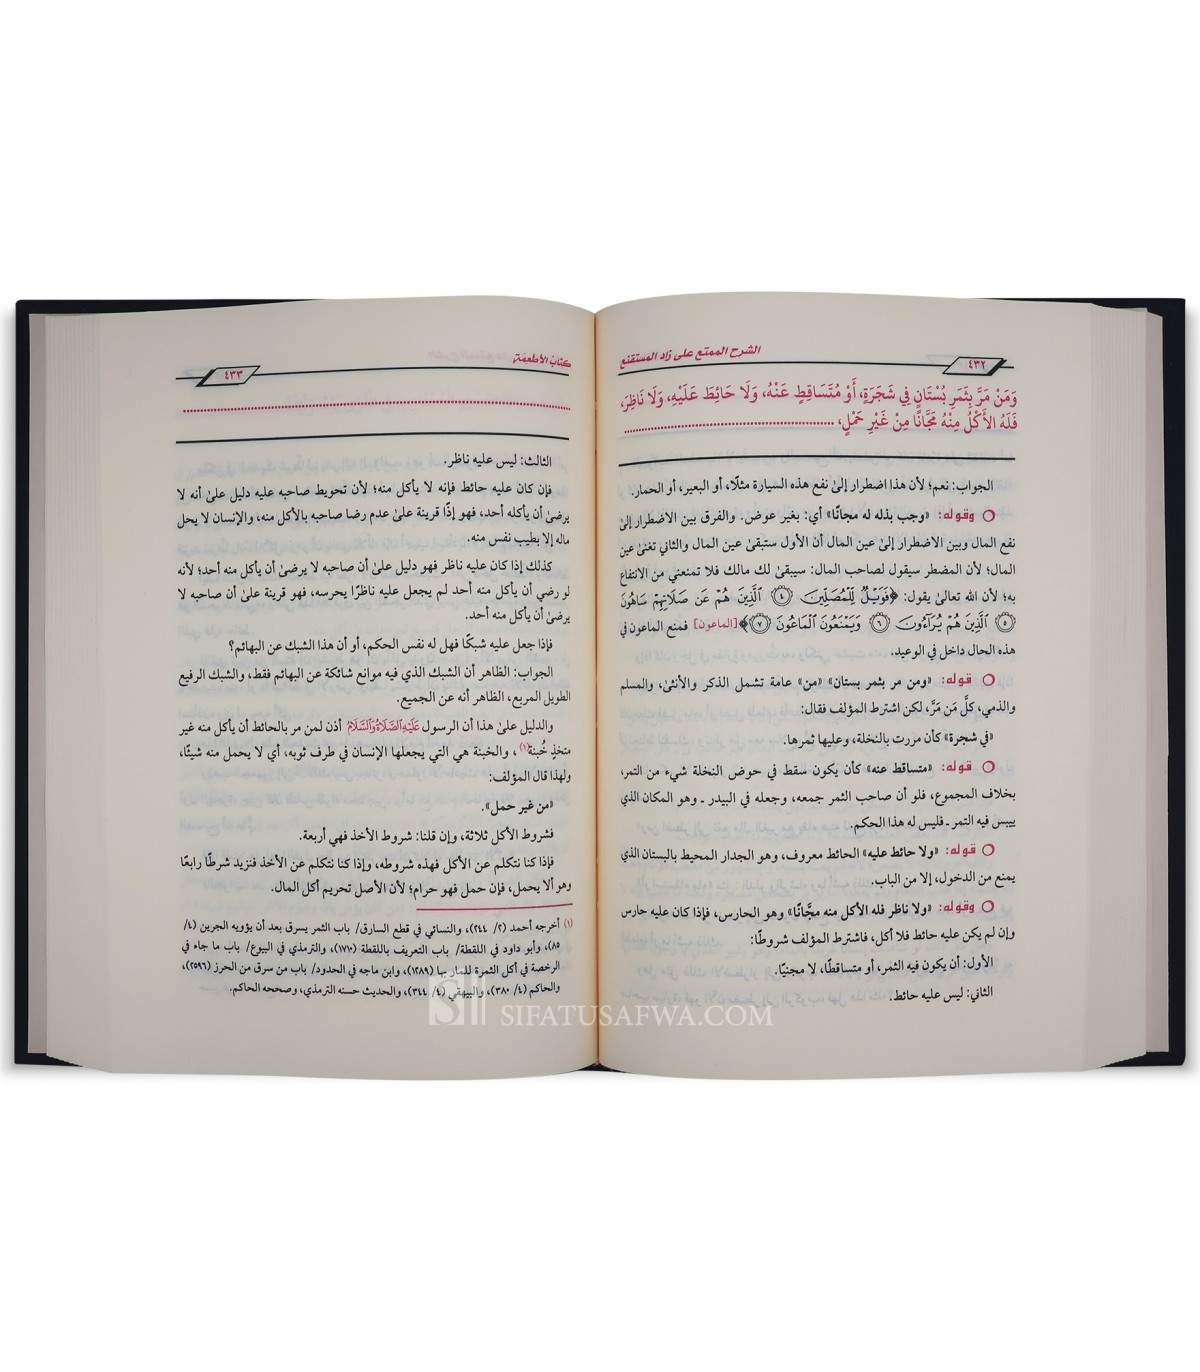 الشرح الممتع على زاد المستقنع
٤٣٢
وَمَنْ مَرَّ بِثَمَرِ بُسْتَانٍ فِي شَجَرَةٍ، أَوْ مُتَسَاقِطٍ عَنْهُ، وَلَا حَائِطَ عَلَيْهِ، وَلَا نَاظِرَ،
فَلَهُ الأَكْلُ مِنْهُ مَجَّانًا مِنْ غَيْرِ حَمْلٍ،
الجواب: نعم؛ لأن هذا اضطرار إلى نفع هذه السيارة مثلًا، أو البعير، أو الحمار.
وقوله: «وجب بذله له مجانًا» أي: بغير عوض. والفرق بين الاضطرار إلى
نفع المال وبين الاضطرار إلى عين المال أن الأول ستبقى عين المال والثاني تفنى عين
المال؛ لأن المضطر سيقول لصاحب المال: سيبقى لك مالك فلا تمنعني من الانتفاع
به؛ لأن الله تعالى يقول: ﴿فَوَيْلٌ لِّلْمُصَلِّينَ ٤ الَّذِينَ هُمْ عَن صَلَاتِهِمْ سَاهُونَ
٥ الَّذِينَ هُمْ يُرَاءُونَ ٦ وَيَمْنَعُونَ الْمَاعُونَ ٧﴾ [الماعون] فمنع الماعون في
هذه الحال داخل في الوعيد.
قوله: «ومن مر بثمر بستان» «من» عامة تشمل الذكر والأنثى، والمسلم
والذمي، كلَّ مَن مَرَّ، لكن اشترط المؤلف فقال:
«في شجرة» كأن مررت بالنخلة، وعليها ثمرها.
قوله: «متساقط عنه» كأن يكون سقط في حوض النخلة شيء من التمر،
بخلاف المجموع، فلو أن صاحب الثمر جمعه، وجعله في البيدر ـ وهو المكان الذي
ييبس فيه التمر ـ فليس له هذا الحكم.
قوله: «ولا حائط عليه» الحائط معروف، وهو الجدار المحيط بالبستان الذي
يمنع من الدخول، إلا من الباب.
وقوله: «ولا ناظر فله الأكل منه مجَّانًا» وهو الحارس، فإذا كان عليه حارس
وإن لم يكن عليه حائط فلا أكل، فاشترط المؤلف شروطًا:
الأول: أن يكون فيه الثمر، أو متساقطًا، لا مجنيًا.
الثاني: ليس عليه حائط.
كتاب الأطعمة
٤٣٣
الثالث: ليس عليه ناظر.
فإن كان عليه حائط فإنه لا يأكل منه؛ لأن تحويط صاحبه عليه دليل على أنه لا
يرضى أن يأكله أحد، فهو إذًا قرينة على عدم رضا صاحبه بالأكل منه، والإنسان لا يحل
ماله إلا بطيب نفس منه.
كذلك إذا كان عليه ناظر فهو دليل على أن صاحبه لا يرضى أن يأكل منه أحد؛ لأنه
لو رضي أن يأكل منه أحد لم يجعل عليه ناظرًا يحرسه، فهو قرينة على أن صاحبه لا
يرضى أن يأكل منه أحد.
فإذا جعل عليه شبكًا فهل له نفس الحكم، أو أن هذا الشبك عن البهائم؟
الجواب: الظاهر أن الشبك الذي فيه موانع شائكة عن البهائم فقط، والشبك الرفيع
الطويل المربع، الظاهر أنه عن الجميع.
والدليل على هذا أن الرسول عَلَيْهِ الصَّلَاةُ وَالسَّلَامُ أذن لمن مر بالحائط أن يأكل منه غير
متخذٍ خُبنة(١)، والخبنة هي التي يجعلها الإنسان في طرف ثوبه، أي لا يحمل منه شيئًا،
ولهذا قال المؤلف:
«من غير حمل».
فشروط الأكل ثلاثة، وإن قلنا: شروط الأخذ فهي أربعة.
فإذا كنا نتكلم عن الأكل فهذه شروطه، وإذا كنا نتكلم عن الأخذ فنزيد شرطًا رابعًا
وهو ألا يحمل، فإن حمل فهو حرام؛ لأن الأصل تحريم أكل المال.
(١) أخرجه أحمد (٢/ ٢٤٤)، والنسائي في قطع السارق/ باب الثمر يسرق بعد أن يؤويه الجرين (٤/
٨٥)، وأبو داود في اللقطة/ باب التعريف باللقطة (١٧١٠)، والترمذي في البيوع/ باب ما جاء في
الرخصة في أكل الثمرة للمار بها (١٢٨٩)، وابن ماجه في الحدود/ باب من سرق من الحرز (٢٥٩٦)،
والحاكم (٤/ ٣٨٠)، والبيهقي (٤/ ٣٤٤)، والحديث حسنه الترمذي، وصححه الحاكم.
SIFATUSAFWA.COM